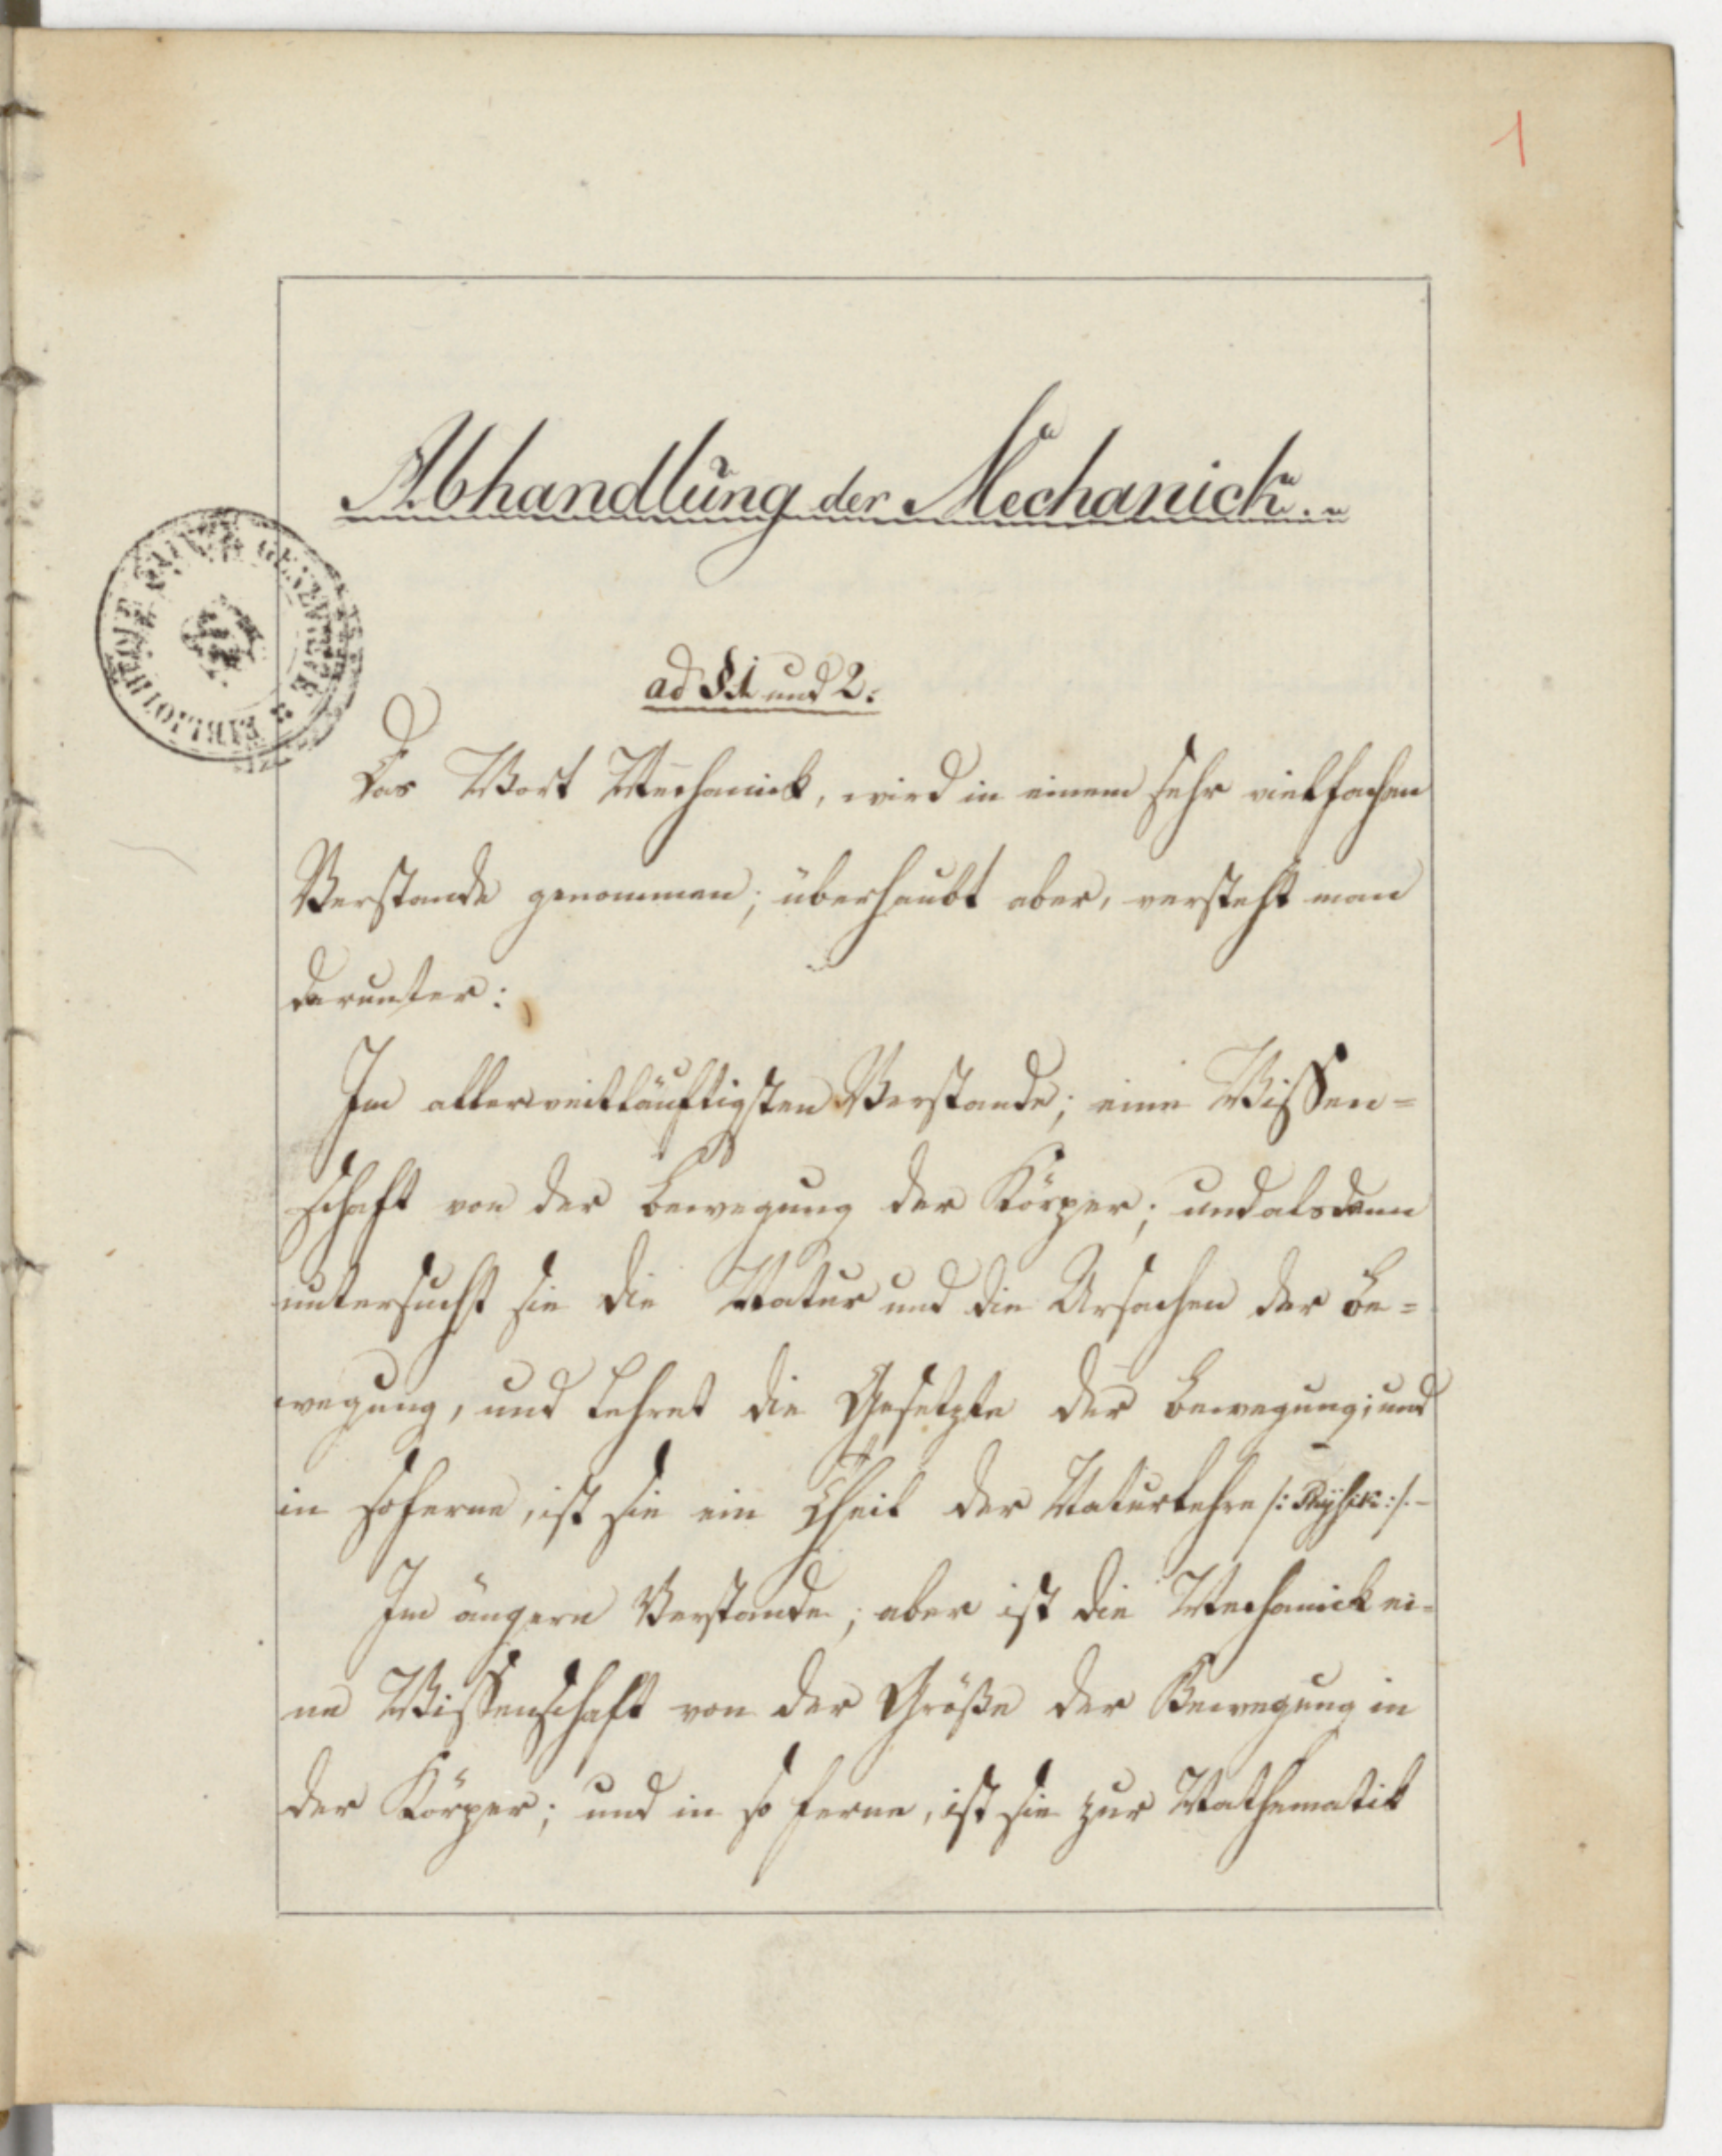 1
Abhandlung der Mechanick.
BIBLIOTHEQUE SAINTE GENEVIEVE
ad § 1 und 2.
Das Wort Mechanick, wird in einem sehr vielfachen
Verstande genommen; überhaubt aber, versteht man
darunter:
Im allerweitläuftigsten Verstande; eine Wissen=
schaft von der Bewegung der Körper; und alsdann
untersucht sie die Natur und die Ursachen der Be=
wegung, und Lehret die Gesetzte der Bewegung; und
in soferne, ist sie ein Theil der Naturlehre /: Physik :/. –
Im ängern Verstande; aber ist die Mechanick ei=
ne Wissenschaft von der Größe der Bewegung in
der Körper; und in so ferne, ist sie zur Mathematik